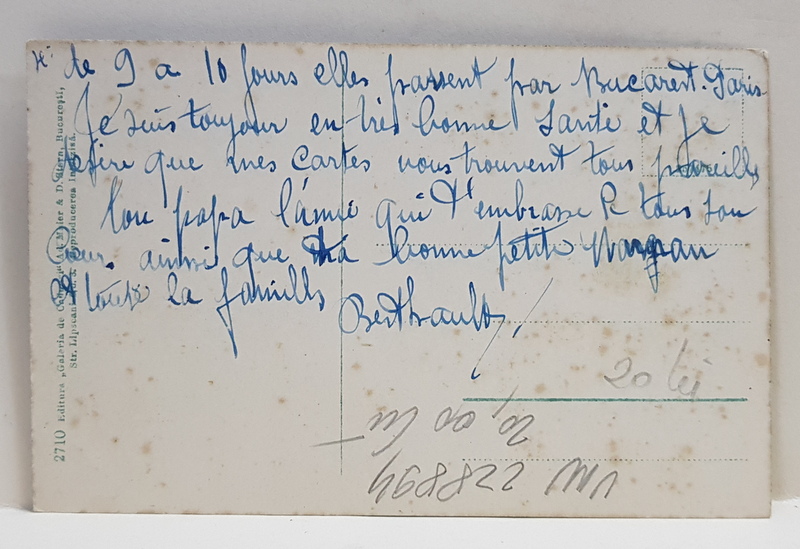 de 9 a 10 jours elles passent par Bucarest. Paris
Je suis toujour en très bonne santé et je
que mes cartes vous trouvent tous pareille
Ton papa l'ami qui t'embrasse de tous son
ainssi que ta bonne petite
et toute la famille
Berthault
2710 Editura „Galeria de & D. Stern, București,
Str. Lipscani Reproducerea
20 lei
20,00 lei
VM 228894